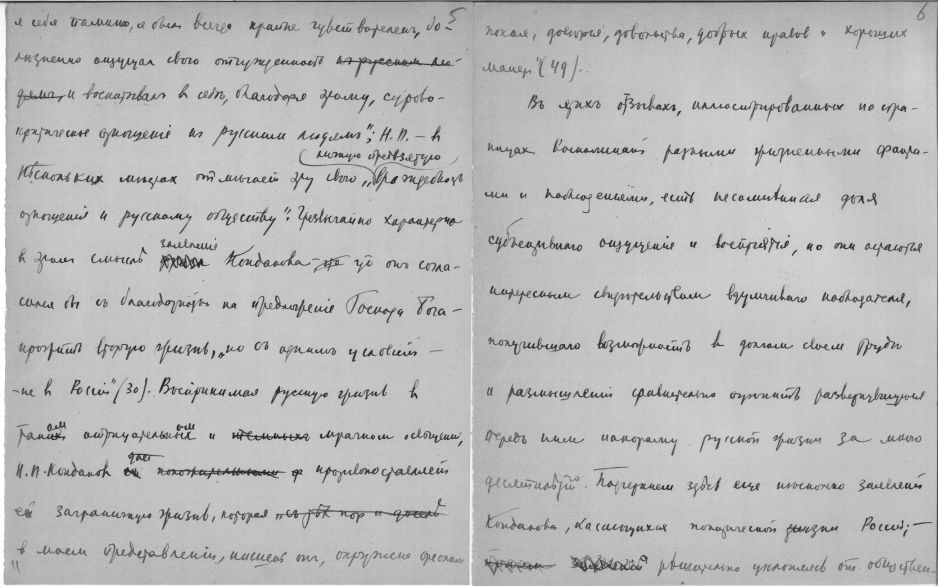 5
я себя помню, я былъ всегда крайне чувствителенъ, бо-
лѣзненно ощущал свою отчужденность
и воспитывалъ в себѣ, благодаря этому, сурово-
критическое отношеніе къ русским людямъ"; Н.П. – в
нѣскольких мѣстах отмѣчает эту свою „враждебность
отношенія к русскому обществу". Чрезвычайно характерно
в этом смыслѣ заявленіе Кондакова что онъ согла-
сился бы съ благодарностью на предложеніе Господа Бога –
прожить вторую жизнь, „но съ однимъ условіем –
– не в Россіи" (30). Воспринимая русскую жизнь в
таком отрицательном и мрачном освѣщеніи,
Н.П. Кондаков противопоставляет
ей заграничную жизнь, которая
„в моем представленіи, писал он, окружена ореолом
6
покоя, довѣрія, довольства, добрых нравов и хороших
манер" (49)..
Въ этих отзывах, иллюстрированных на стра-
ницах воспоминаній разными жизненными факта-
ми и наблюденіями, есть несомнѣнная доля
субъективнаго ощущенія и воспріятія, но они остаются
интересным свидѣтельством вдумчиваго наблюдателя,
получившаго возможность в долгом своем труде
и размышленіи сравнительно оцѣнить развернувшуюся
перед ним панораму русской жизни за много
десятилѣтій. Подчеркнем здѣсь еще нѣсколько заявленій
Кондакова, касающихся политической жизни Россіи; –
рѣшительно уклоняясь от обществен-